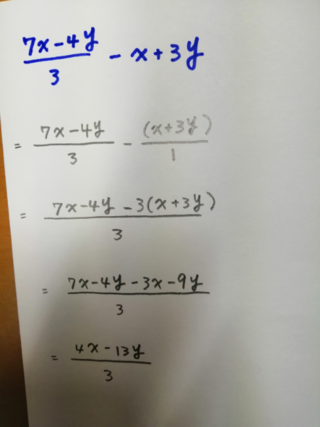 (7x-4y)/3 - x+3y
= (7x-4y)/3 - (x+3y)/1
= (7x-4y-3(x+3y))/3
= (7x-4y-3x-9y)/3
= (4x-13y)/3